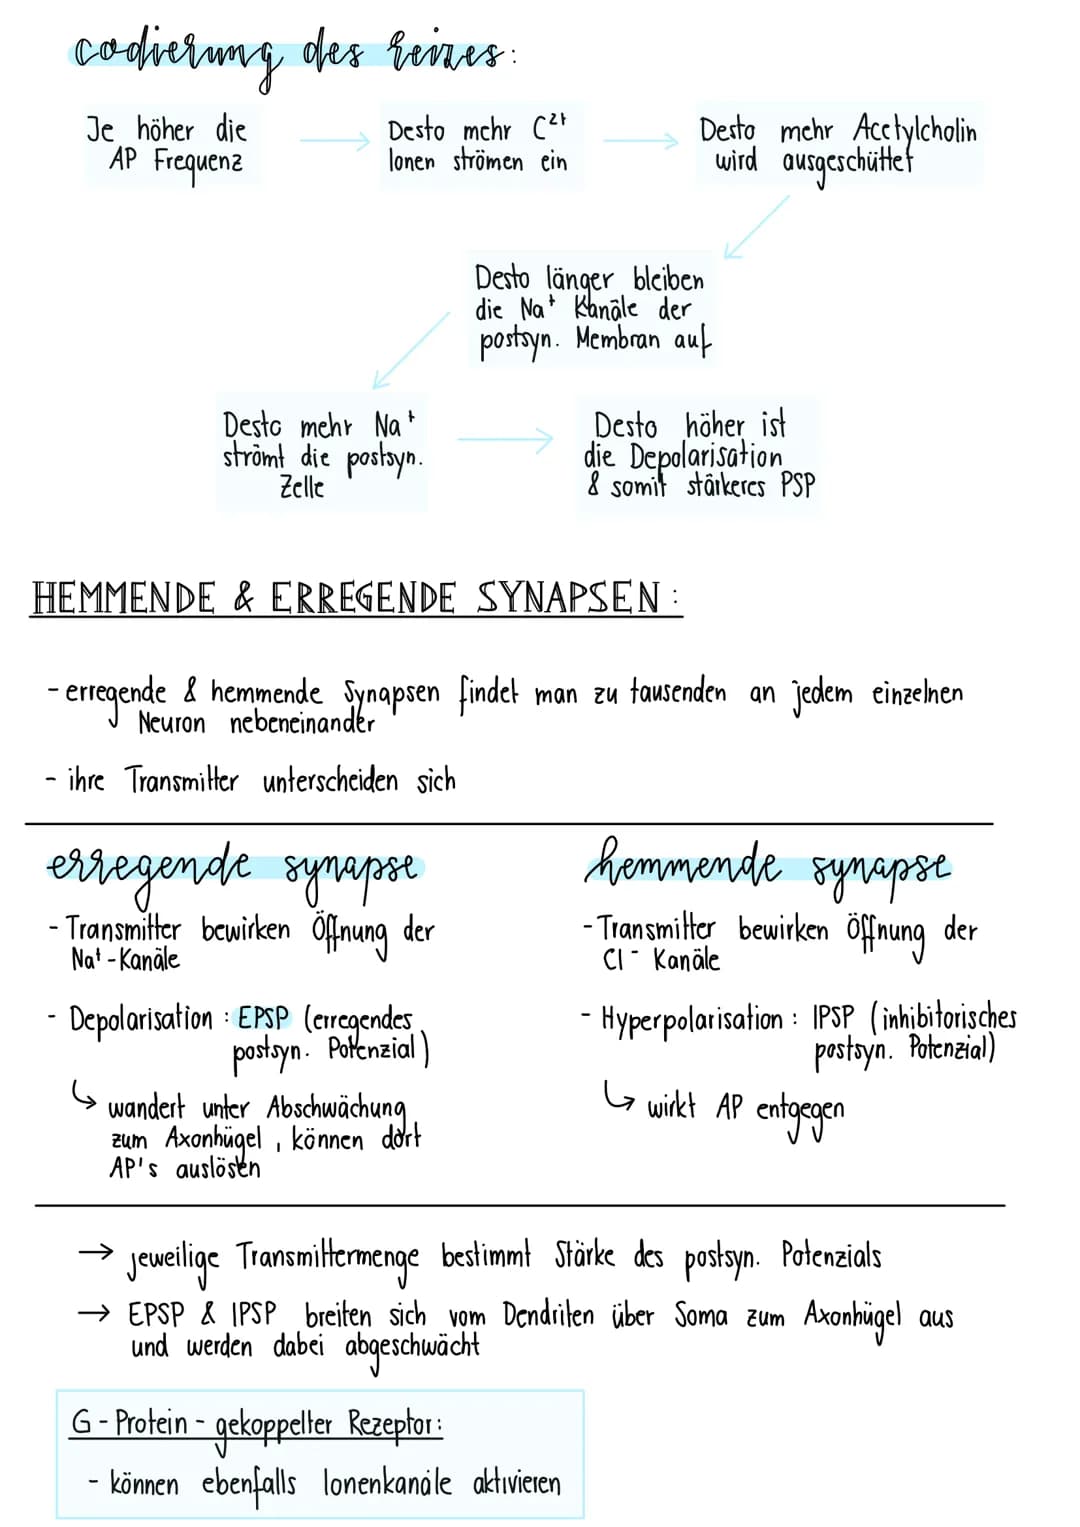 codierung des Reizes:
Je höher die
AP Frequenz
Desto mehr C²⁺
Ionen strömen ein
Desto mehr Acetylcholin
wird ausgeschüttet
Desto länger bleiben
die Na⁺ Kanäle der
postsyn. Membran auf
Desto mehr Na⁺
strömt die postsyn.
Zelle
Desto höher ist
die Depolarisation
& somit stärkeres PSP
HEMMENDE & ERREGENDE SYNAPSEN:
- erregende & hemmende Synapsen findet man zu tausenden an jedem einzelnen
Neuron nebeneinander
- ihre Transmitter unterscheiden sich
erregende synapse
- Transmitter bewirken Öffnung der
Na⁺-Kanäle
- Depolarisation: EPSP (erregendes
postsyn. Potenzial)
↳ wandert unter Abschwächung
zum Axonhügel, können dort
AP's auslösen
hemmende synapse
- Transmitter bewirken Öffnung der
Cl⁻ Kanäle
- Hyperpolarisation: IPSP (inhibitorisches
postsyn. Potenzial)
↳ wirkt AP entgegen
→ jeweilige Transmittermenge bestimmt Stärke des postsyn. Potenzials
→ EPSP & IPSP breiten sich vom Dendriten über Soma zum Axonhügel aus
und werden dabei abgeschwächt
G-Protein-gekoppelter Rezeptor:
- können ebenfalls Ionenkanäle aktivieren